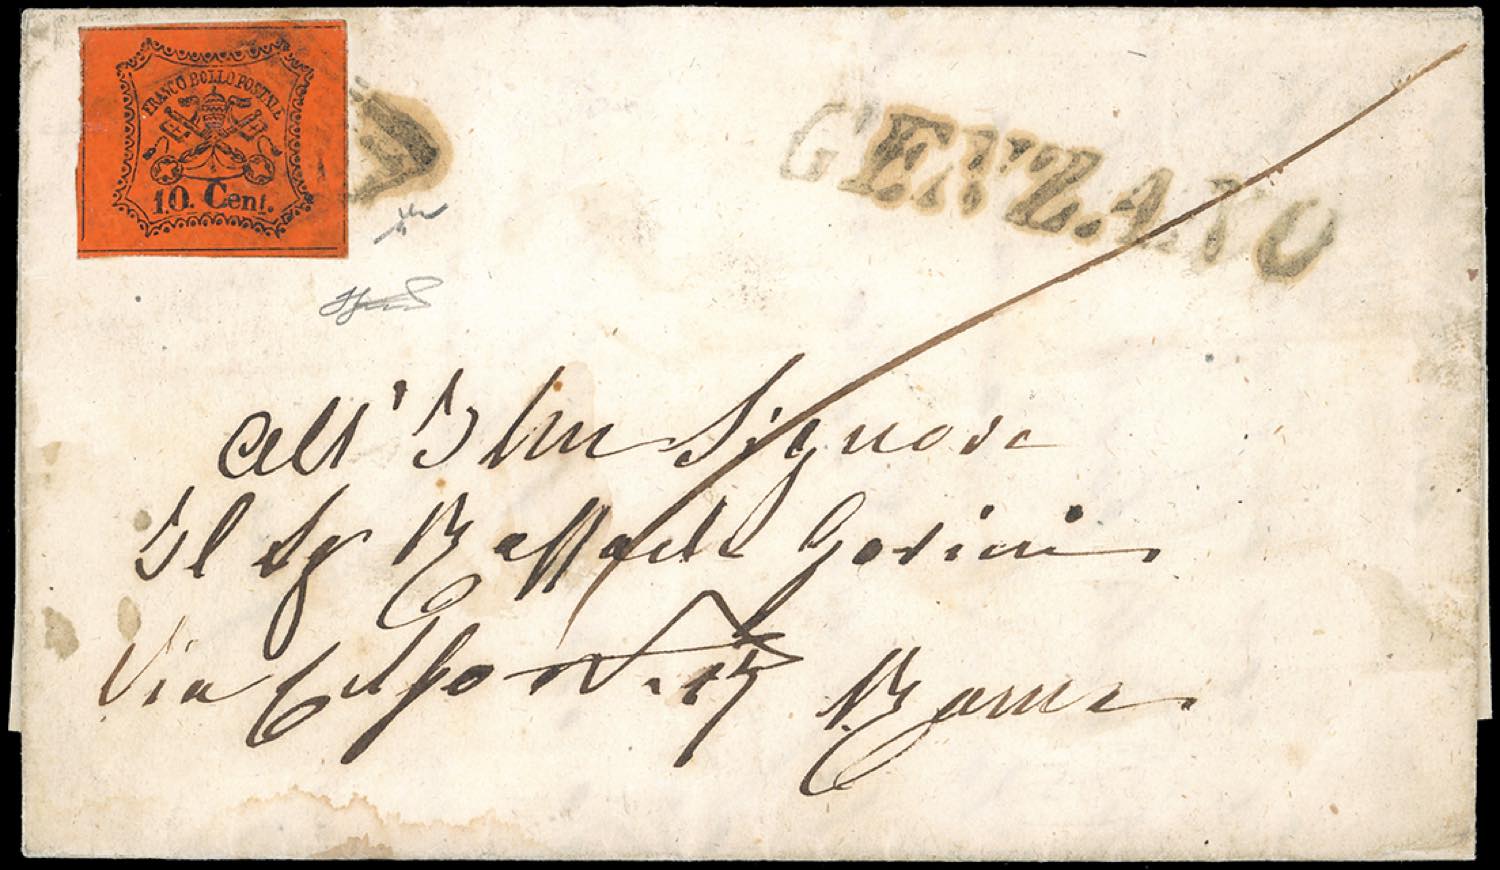 FRANCO BOLLO POSTALE
10. Cent.
GENZANO
All' Illmo Signore
Il Sig Raffaele Gorini
Via N. 17 Roma